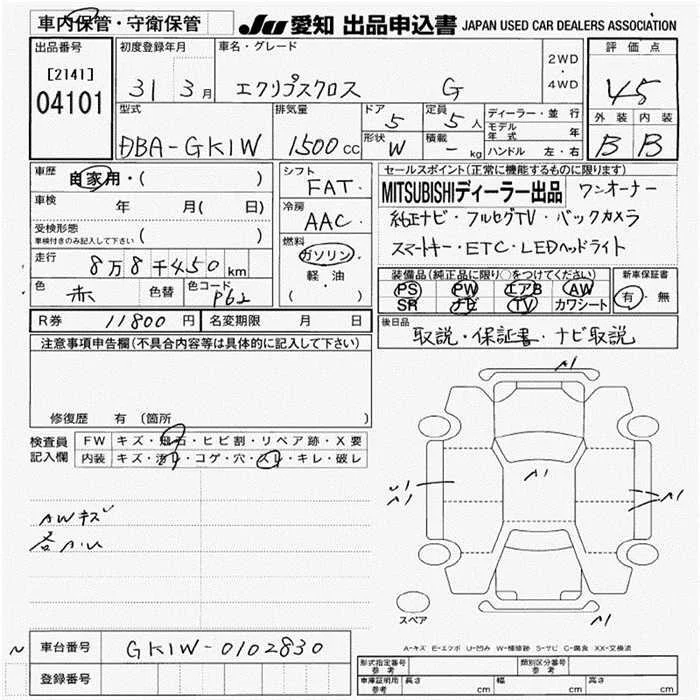 車内保管・守衛保管
JU 愛知 出品申込書 JAPAN USED CAR DEALERS ASSOCIATION
出品番号
[2141]
04101
初度登録年月
31 3月
車名・グレード
エクリプスクロス G
2WD
・
4WD
評価点
4.5
外装 内装
B B
型式
DBA-GK1W
排気量
1500cc
ドア
5
定員
5人
形状
W
積載
- kg
ディーラー・並行
モデル年式 年
ハンドル 左・右
車歴
自家用・( )
車検
年 月( 日)
受検形態
車検付きのみ記入して下さい ( )
走行
8万8千450km
色
赤
色替
色コード
P62
シフト
FAT
冷房
AAC
燃料
ガソリン
・
軽・油
( )
セールスポイント(正常に機能するものに限ります)
MITSUBISHIディーラー出品 ワンオーナー
純正ナビ・フルセグTV・バックカメラ
スマートキー・ETC・LEDヘッドライト
装備品(純正品に限り○をつけてください)
PS PW エアB AW
SR ナビ TV カワシート
新車保証書
有・無
R券 11800円
名変期限 月 日
後日品
取説・保証書・ナビ取説
注意事項申告欄(不具合内容等は具体的に記入して下さい)
修復歴 有(箇所 )
検査員
記入欄
FW キズ・飛石・ヒビ割・リペア跡・X要
内装 キズ・汚レ・コゲ・穴・スレ・キレ・破レ
AWキズ
A1
A1
U1
A1
A1
A1
スペア
A-キズ E-エクボ U-凹み W-補修跡 S-サビ C-腐食 XX-交換済
車台番号
GK1W-0102830
登録番号
形式指定番号
参考
類別区分番号
参考
車庫証明用
参考
長さ cm
幅 cm
高さ cm